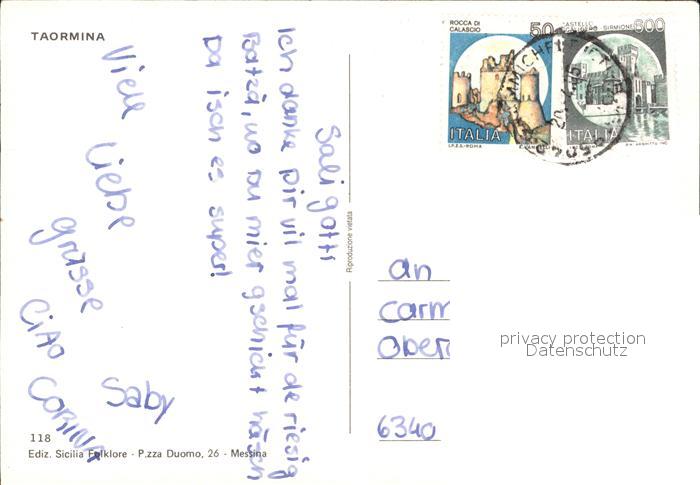 TAORMINA
Sali gotti
Ich danke Dir vil mal für de riesig
Batzä, wo Du mier gschickt häsch
Da isch es super!
Viele
Liebe
grüsse
CIAO
CORINA
Saby
118
Ediz. Sicilia Folklore - P.zza Duomo, 26 - Messina
Riproduzione vietata
ROCCA DI
CALASCIO
50
ITALIA
I.P.Z.S.-ROMA
600
ITALIA
An
Carm
Ober
6340
privacy protection
Datenschutz